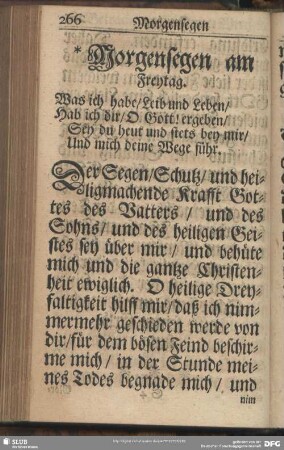 266 Morgensegen
* Morgensegen am
Freytag.
Was ich habe/ Leib und Leben/
Hab ich dir/ O Gott! ergeben/
Sey du heut und stets bey mir/
Und mich deine Wege führ.
Der Segen/ Schutz/ und hei-
ligmachende Krafft Got-
tes des Vatters/ und des
Sohns/ und des heiligen Gei-
stes sey über mir/ und behüte
mich und die gantze Christen-
heit ewiglich. O heilige Drey-
faltigkeit hilff mir/ daß ich nim-
mermehr geschieden werde von
dir/ für dem bösen Feind beschir-
me mich/ in der Stunde mei-
nes Todes begnade mich/ und
nim
SLUB
DFG